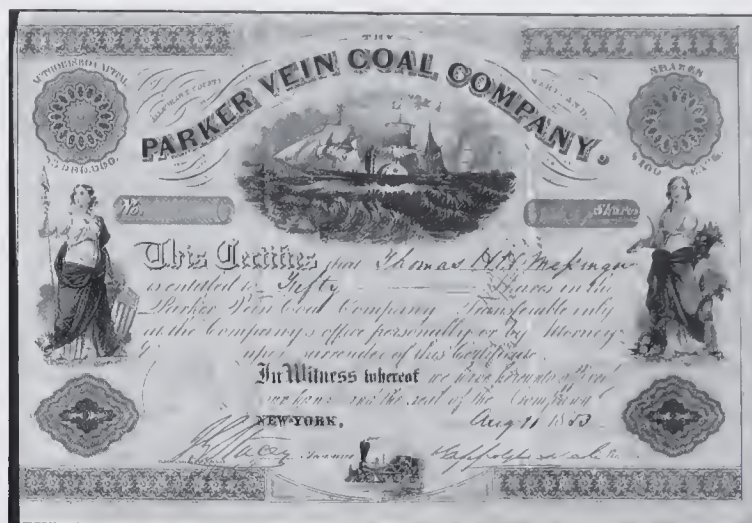 THE
PARKER VEIN COAL COMPANY.
ALLEGANY COUNTY
MARYLAND.
SHARES
$100 EACH
No.
Shares
This Certifies that Thomas H.H. Messinger
is entitled to Fifty Shares in the
Parker Vein Coal Company Transferable only
at the Company's office personally or by Attorney
upon surrender of this Certificate.
In Witness whereof we have hereunto affixed
our and the seal of the Company
NEW-YORK, Aug 11 1853